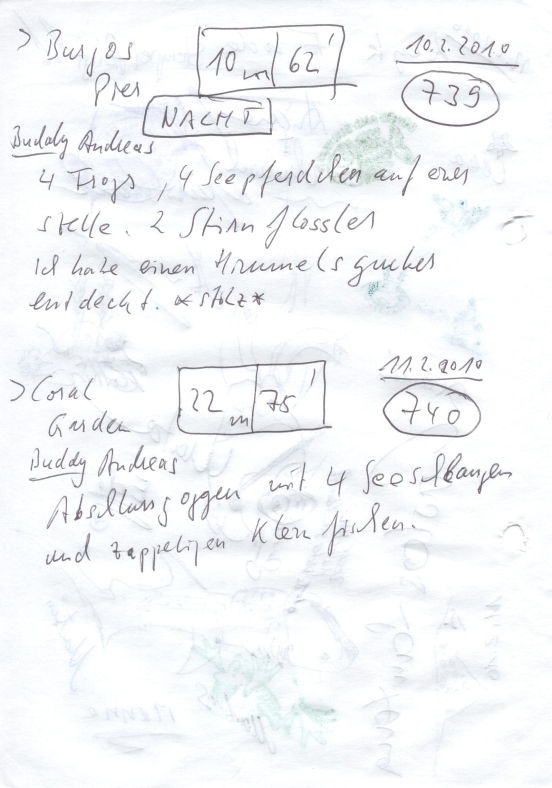 > Burgos 10 m 62' 10.2.2010
Pier 739
NACHT
Buddy Andreas
4 Frogs, 4 Seepferdchen auf einer
stelle. 2 Stirnflossler
ich habe einen Himmelsgucker
entdeckt. *stolz*
> Coral 22 m 75' 11.2.2010
Garden 740
Buddy Andreas
mit 4 Seeschlangen
und zappeligen Kleinfischen.